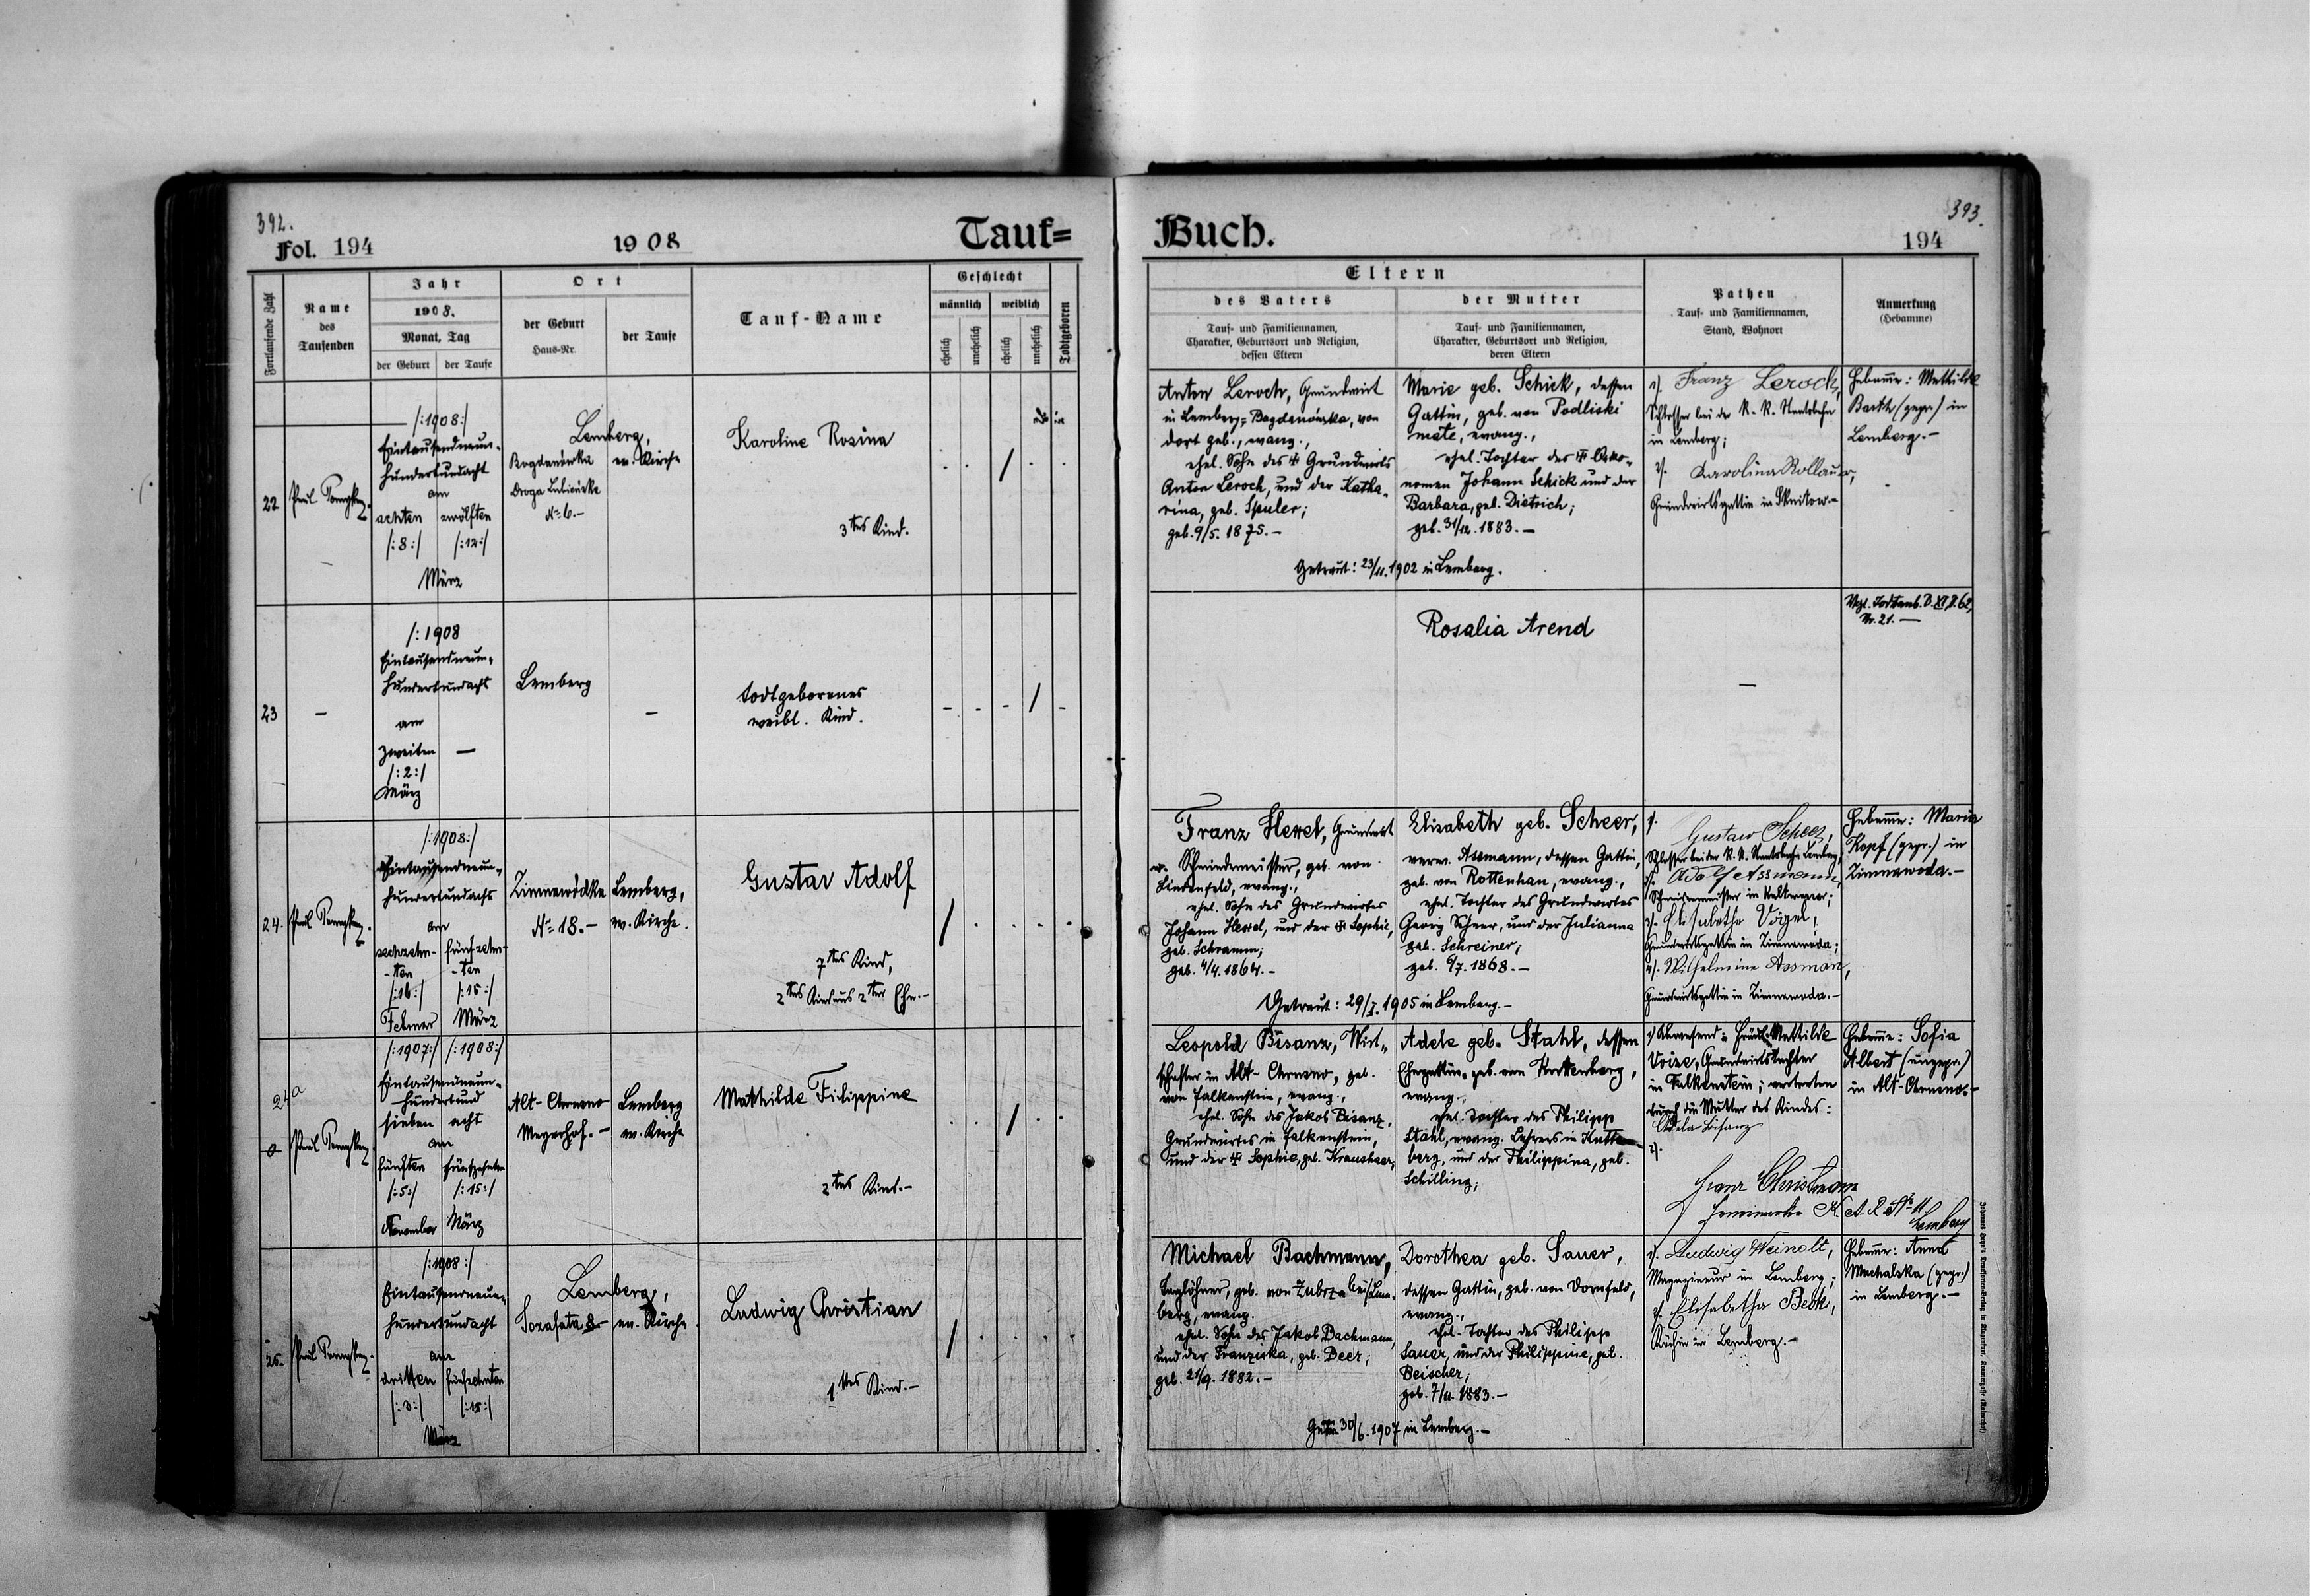 392.
Fol. 194
1908
Tauf=
Buch.
393.
194
Fortlaufende Zahl
Name
des
Taufenden
Jahr
1908.
Monat, Tag
der Geburt
der Taufe
Ort
der Geburt
Haus-Nr.
der Taufe
Tauf-Name
Geschlecht
männlich
weiblich
ehelich
unehelich
ehelich
unehelich
Todtgeboren
Eltern
des Vaters
Tauf- und Familiennamen,
Charakter, Geburtsort und Religion,
dessen Eltern
der Mutter
Tauf- und Familiennamen,
Charakter, Geburtsort und Religion,
deren Eltern
Pathen
Tauf- und Familiennamen,
Stand, Wohnort
Anmerkung
(Hebamme)
22
Paul
/:1908:/
Eintausendneun-
hundertundacht
am
achten
zwölften
/:8:/
/:12:/
März
Lemberg,
Bogdanówka
ev. Kirche
Droga Lubieńska
No 6.-
Karoline Rosina
3tes Kind.
Anton Leroch, Grundwirt
in Lemberg-Bogdanówka, von
dort geb., evang.,
ehel. Sohn des Grundwirts
Anton Leroch, und der Katha-
rina, geb. Spuler;
geb. 9/5. 1875.-
Marie geb. Schick, dessen
Gattin, geb. von Podliski
małe, evang.,
ehel. Tochter des Öko-
nomen Johann Schick und der
Barbara, geb. Dietrich;
geb. 31/12. 1883.-
Getraut: 23/11. 1902 in Lemberg.
1). Franz Leroch,
Schlosser bei der K. K. Staatsbahn
in Lemberg;
2). Karolina Rollauer,
Grundwirtsgattin in Sknitow.-
Hebamme: Mathilde
Barth (gepr.) in
Lemberg.-
23
-
/:1908
Eintausendneun-
hundertundacht
am
zweiten
-
/:2:/
März
Lemberg
-
todtgeborenes
weibl. Kind.
Rosalia Arend
-
Nr. 21.-
24.
Paul
/:1908:/
Eintausendneun-
hundertundacht
am
sechzehn-
-ten
fünfzehn-
-ten
/:16:/
/:15:/
Feber
März
Zimnawódka
No 18.-
Lemberg,
ev. Kirche.
Gustav Adolf
7tes Kind,
2tes Kind aus 2ter Ehe.-
Franz Hexel, Grundwirt
u. Schmiedemeister, geb. von
Lindenfeld, evang.,
ehel. Sohn des Grundwirtes
Johann Hexel, und der Sophie,
geb. Schramm;
geb. 4/4. 1864.-
Elisabeth geb. Scheer,
verw. Assmann, dessen Gattin,
geb. von Rottenhan, evang.,
ehel. Tochter des Grundwirtes
Georg Scheer, und der Julianna
geb. Schreiner;
geb. 6/7. 1868.-
Getraut: 29/1. 1905 in Lemberg.-
1).
Gustav Scheer,
Schlosser bei der K. K. Staatsbahn Lemberg;
2). Adolf Assmann,
Schmiedemeister in
3). Elisabetha Vögel,
Grundwirtsgattin in Zimnawoda;
4). Wilhelmine Assman,
Grundwirtsgattin in Zimnawoda.-
Hebamme: Maria
Kopf (gepr.) in
Zimnawoda.-
24a
Paul
/:1907:/
/:1908:/
Eintausendneun-
hundertund
sieben
acht
am
fünften
fünfzehnten
/:5:/
/:15:/
November
März
Alt-Chrusno
Meyerhof.-
Lemberg
ev. Kirche
Mathilde Filippine
2tes Kind.-
Leopold Bisanz, Wirt-
schafter in Alt-Chrusno, geb.
von Falkenstein, evang.,
ehel. Sohn des Jakob Bisanz,
Grundwirtes in Falkenstein,
und der Sophie, geb. Kraushaar;
Adele geb. Stahl, dessen
Ehegattin, geb. von Kuttenberg,
evang.,
ehel. Tochter des Philipp
Stahl, evang. Lehrers in Kutten-
berg, und der Philippina, geb.
Schilling;
1) Abwesend: Fräul. Mathilde
Voize, Grundwirtstochter
in Falkenstein; vertreten
durch die Mutter des Kindes:
Adela Bisanz
2).
Franz Christmann
Lemberg
Hebamme: Sofia
Albert (ungepr.)
in Alt-Chrusno.-
25.
Paul
/:1908:/
Eintausendneun-
hundertundacht
am
dritten
fünfzehnten
/:3:/
/:15:/
März
Lemberg,
Jozafata 8
ev. Kirche
Ludwig Christian
1tes Kind.-
Michael Bachmann,
Taglöhner, geb. von Zubrza bei Lem-
berg, evang.
ehel. Sohn des Jakob Bachmann,
und der Franziska, geb. Deer;
geb. 21/9. 1882.-
Dorothea geb. Sauer,
dessen Gattin, geb. von Dornfeld,
evang.,
ehel. Tochter des Philipp
Sauer, und der Philippine, geb.
Beischer;
geb. 7/11. 1883.-
Getr. 30/6. 1907 in Lemberg.-
1). Ludwig Weinolt,
Magazineur in Lemberg;
2). Elisabetha Beck,
Köchin in Lemberg.-
Hebamme: Anna
Machalska (gepr.)
in Lemberg.-